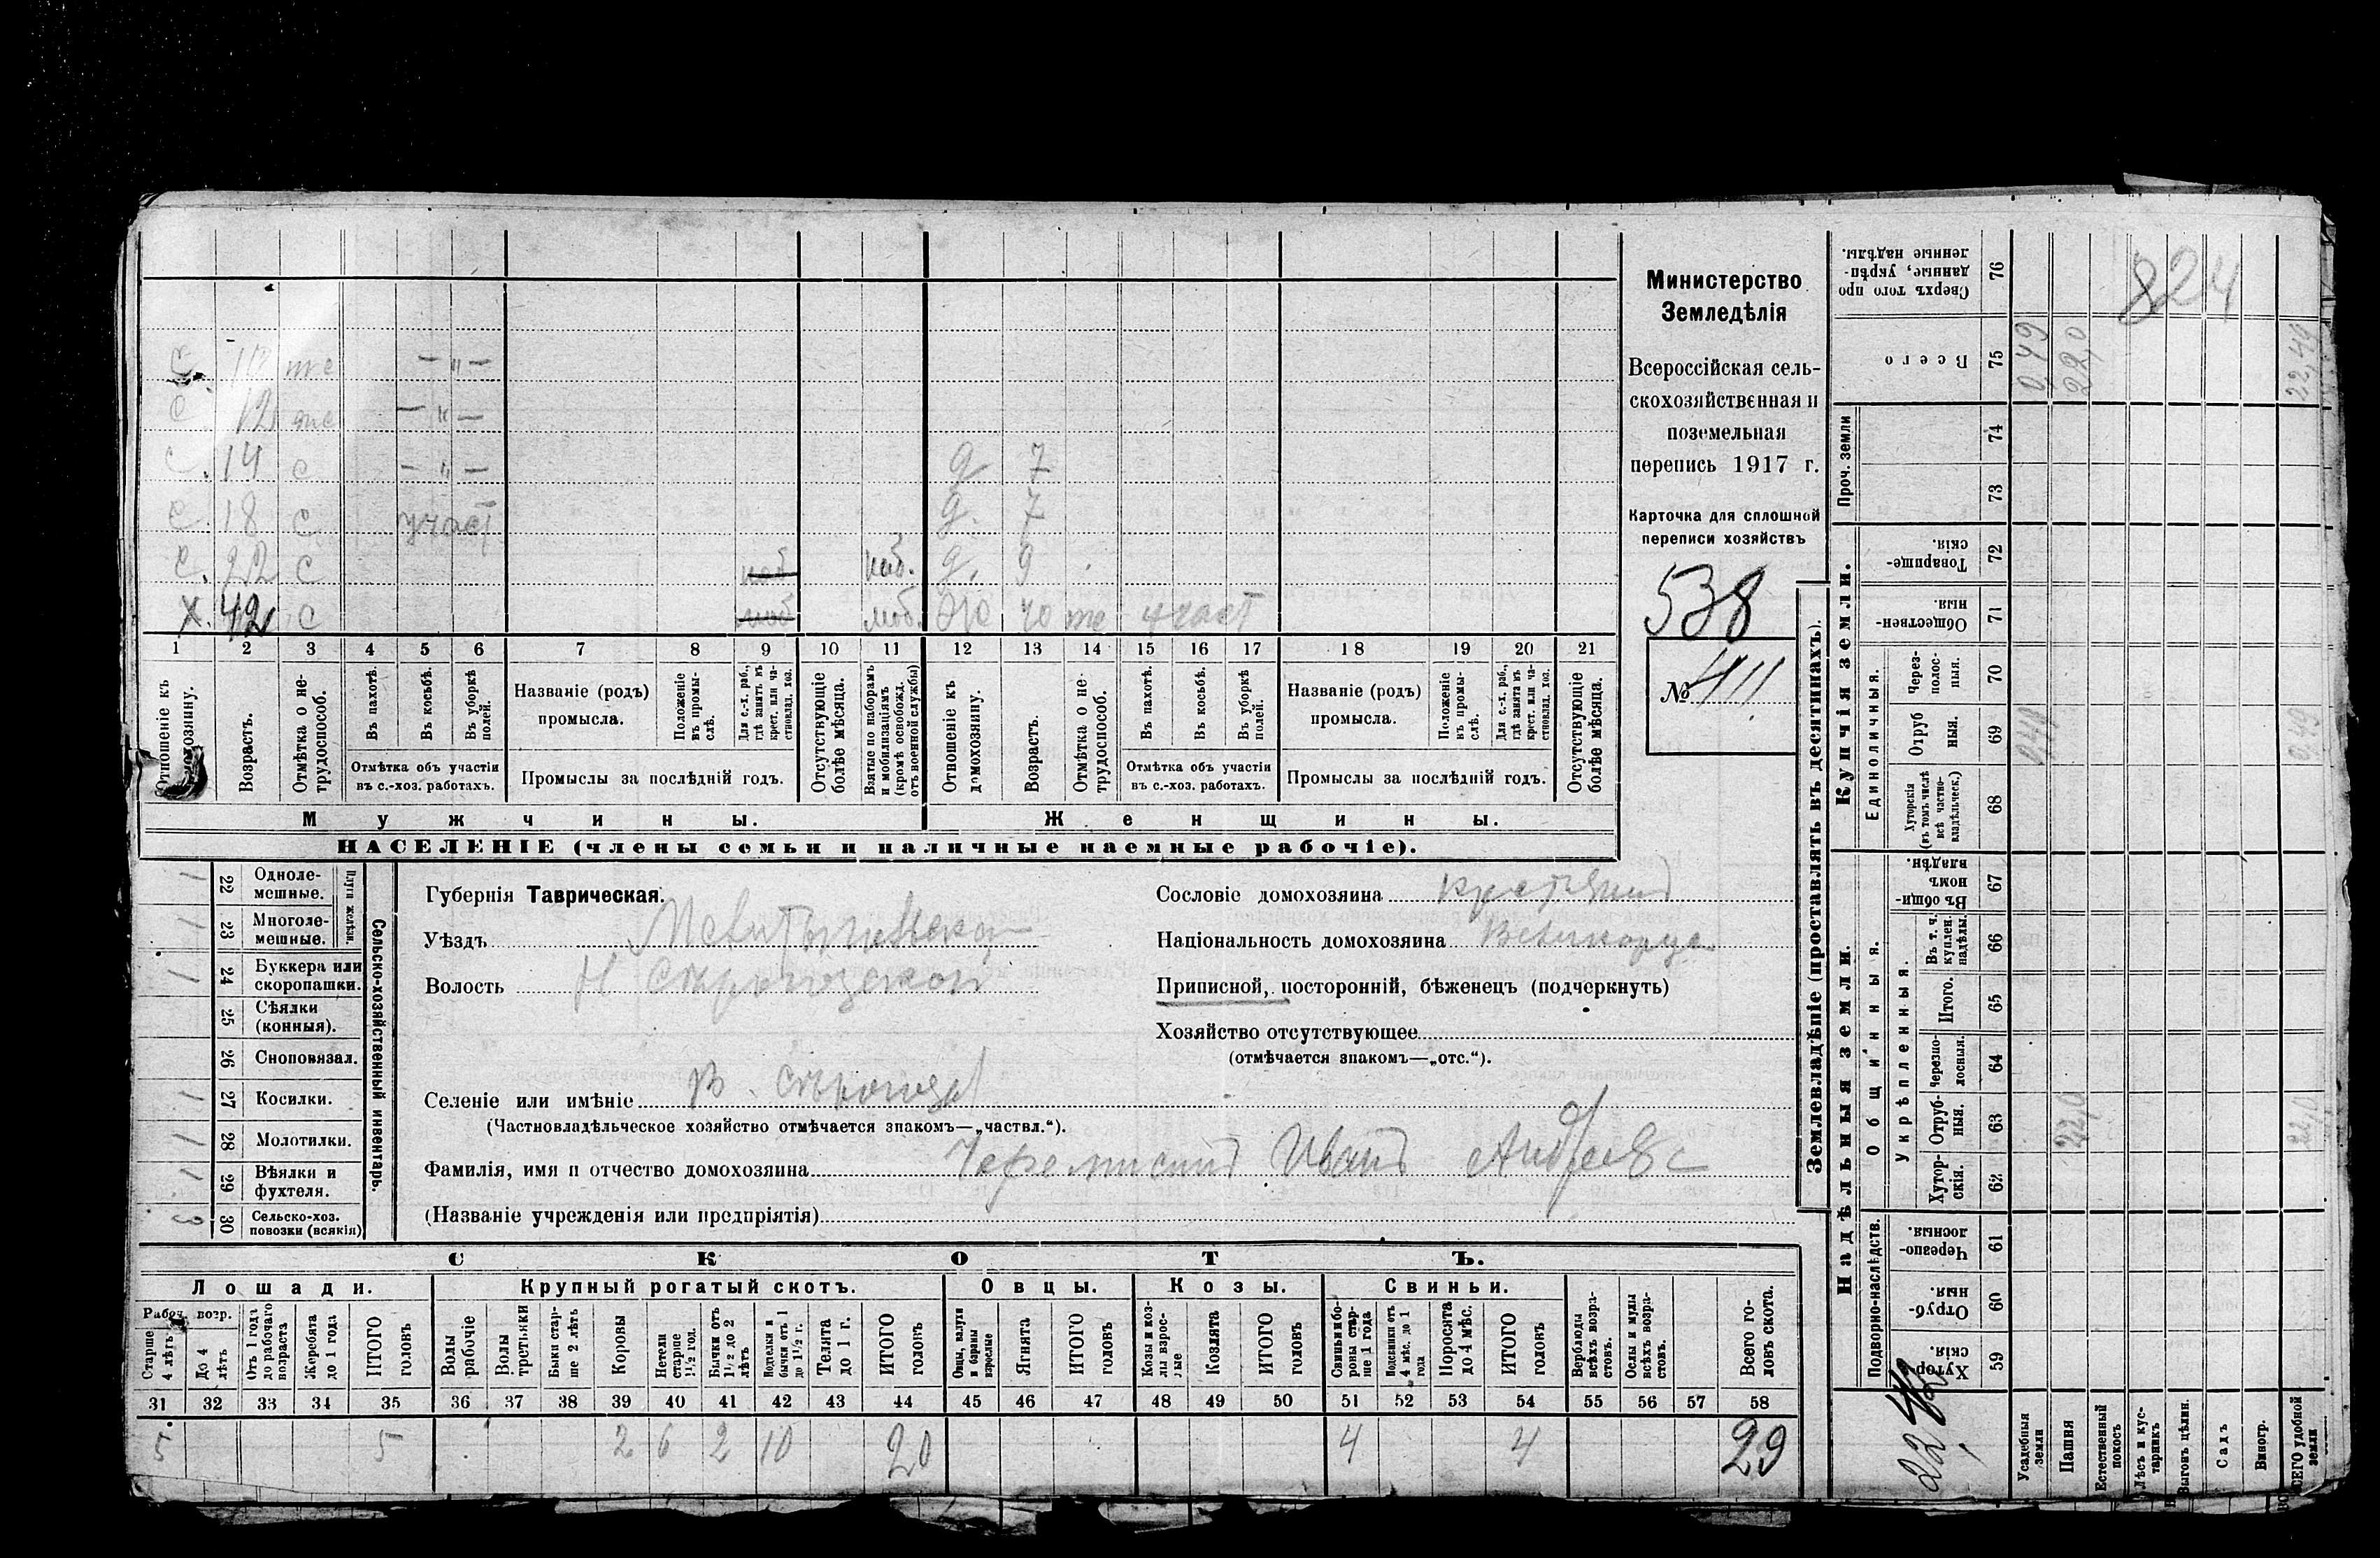 Министерство
Земледѣлія
Всероссійская сель-
скохозяйственная и
поземельная
перепись 1917 г.
Карточка для сплошной
переписи хозяйствъ
538
№ 411
824
С 10 же — „ —
С 12 же — „ —
С. 14 С — „ — д 7
С. 18 С участ д. 7
С. 22 С моб моб. д. 9
Х. 42 С моб моб. 40 же участ
1 2 3 4 5 6 7 8 9 10 11 12 13 14 15 16 17 18 19 20 21
Отношеніе къ домохозяину.
Возрастъ.
Отмѣтка о не-
трудоспособ.
Въ пахотѣ.
Въ косьбѣ.
Въ уборкѣ
полей.
Отмѣтка объ участіи
въ с.-хоз. работахъ.
Названіе (родъ)
промысла.
Положеніе
въ промы-
слѣ.
Для с.-х. раб.,
гдѣ занятъ въ
крест. или ча-
стновлад. хоз.
Промыслы за послѣдній годъ.
Отсутствующіе
болѣе мѣсяца.
Взятые по наборамъ
и мобилизаціямъ
(кромѣ освобожд.
отъ военной службы)
Отношеніе къ
домохозяину.
Возрастъ.
Отмѣтка о не-
трудоспособ.
Въ пахотѣ.
Въ косьбѣ.
Въ уборкѣ
полей.
Отмѣтка объ участіи
въ с.-хоз. работахъ.
Названіе (родъ)
промысла.
Положеніе
въ промы-
слѣ.
Для с.-х. раб.,
гдѣ занята въ
крест. или ча-
стновлад. хоз.
Промыслы за послѣдній годъ.
Отсутствующіе
болѣе мѣсяца.
Мужчины. Женщины.
НАСЕЛЕНІЕ (члены семьи и наличные наемные рабочіе).
Сельско-хозяйственный инвентарь.
Плуги желѣзн.
1 22 Одноле-
мешные.
1 23 Многоле-
мешные.
1 24 Буккера или
скоропашки.
25 Сѣялки
(конныя).
26 Сноповязал.
1 27 Косилки.
1 28 Молотилки.
1 29 Вѣялки и
фухтеля.
3 30 Сельско-хоз.
повозки (всякія)
Губернія Таврическая.
Уѣздъ Мелитопольскій
Волость Н Сѣрогозской
Селеніе или имѣніе В. Сѣрогозы
(Частновладѣльческое хозяйство отмѣчается знакомъ—„частвл.“).
Фамилія, имя и отчество домохозяина Черемисинъ Иванъ Андреев
(Названіе учрежденія или предпріятія)
Сословіе домохозяина крестьянинъ
Національность домохозяина Великорус
Приписной, посторонній, бѣженецъ (подчеркнуть)
Хозяйство отсутствующее
(отмѣчается знакомъ—„отс.“).
СКОТЪ.
Лошади. Крупный рогатый скотъ. Овцы. Козы. Свиньи.
Рабоч. возр.
Старше
4 лѣтъ
До 4
лѣтъ
Отъ 1 года
до рабочаго
возраста
Жеребята
до 1 года
ИТОГО
головъ
Волы
рабочіе
Волы
третьяки
Быки стар-
ше 2 лѣтъ
Коровы
Нетели
старше
1½ год.
Бычки отъ
1½ до 2
лѣтъ
Подтелки и
бычки отъ 1
до 1½ г.
Телята
до 1 г.
ИТОГО
головъ
Овцы, валухи
и бараны
взрослые
Ягнята
ИТОГО
головъ
Козы и коз-
лы взрос-
лые
Козлята
ИТОГО
головъ
Свиньи и бо-
ровы стар-
ше 1 года
Подсвинки отъ
4 мѣс. до 1
года
Поросята
до 4 мѣс.
ИТОГО
головъ
Верблюды
всѣхъ возра-
стовъ.
Ослы и мулы
всѣхъ возра-
стовъ.
Всего го-
ловъ скота.
31 32 33 34 35 36 37 38 39 40 41 42 43 44 45 46 47 48 49 50 51 52 53 54 55 56 57 58
5 5 2 6 2 10 20 4 4 29
Землевладѣніе (проставлять въ десятинахъ).
Надѣльныя земли. Купчія земли. Проч. земли
Подворно-наслѣдств. Общинныя. Единоличныя.
Укрѣпленныя.
Хутор-
скія. 59
Отруб-
ныя. 60
Черезпо-
лосныя. 61
Хутор-
скія. 62
Отруб-
ныя. 63
Черезпо-
лосныя. 64
Итого. 65
Въ т. ч.
куплен.
надѣлы. 66
Въ общи-
номъ
владѣн. 67
Хуторскія
(въ томъ числѣ
всѣ частно-
владѣльческ.) 68
Отруб
ныя. 69
Через-
полос-
ныя. 70
Обществен-
ныя. 71
Товарище-
скія. 72
73
74
Всего 75
Сверхъ того про
данные, укрѣп-
ленные надѣлы. 76
Усадебныя
земли 0,49
Пашня 22,0 22,0
Естественный
покосъ
Лѣсъ и кус-
тарникъ
Выгонъ цѣлин.
Садъ
Виногр.
ВСЕГО удобной
земли 22,0 0,49 22,49